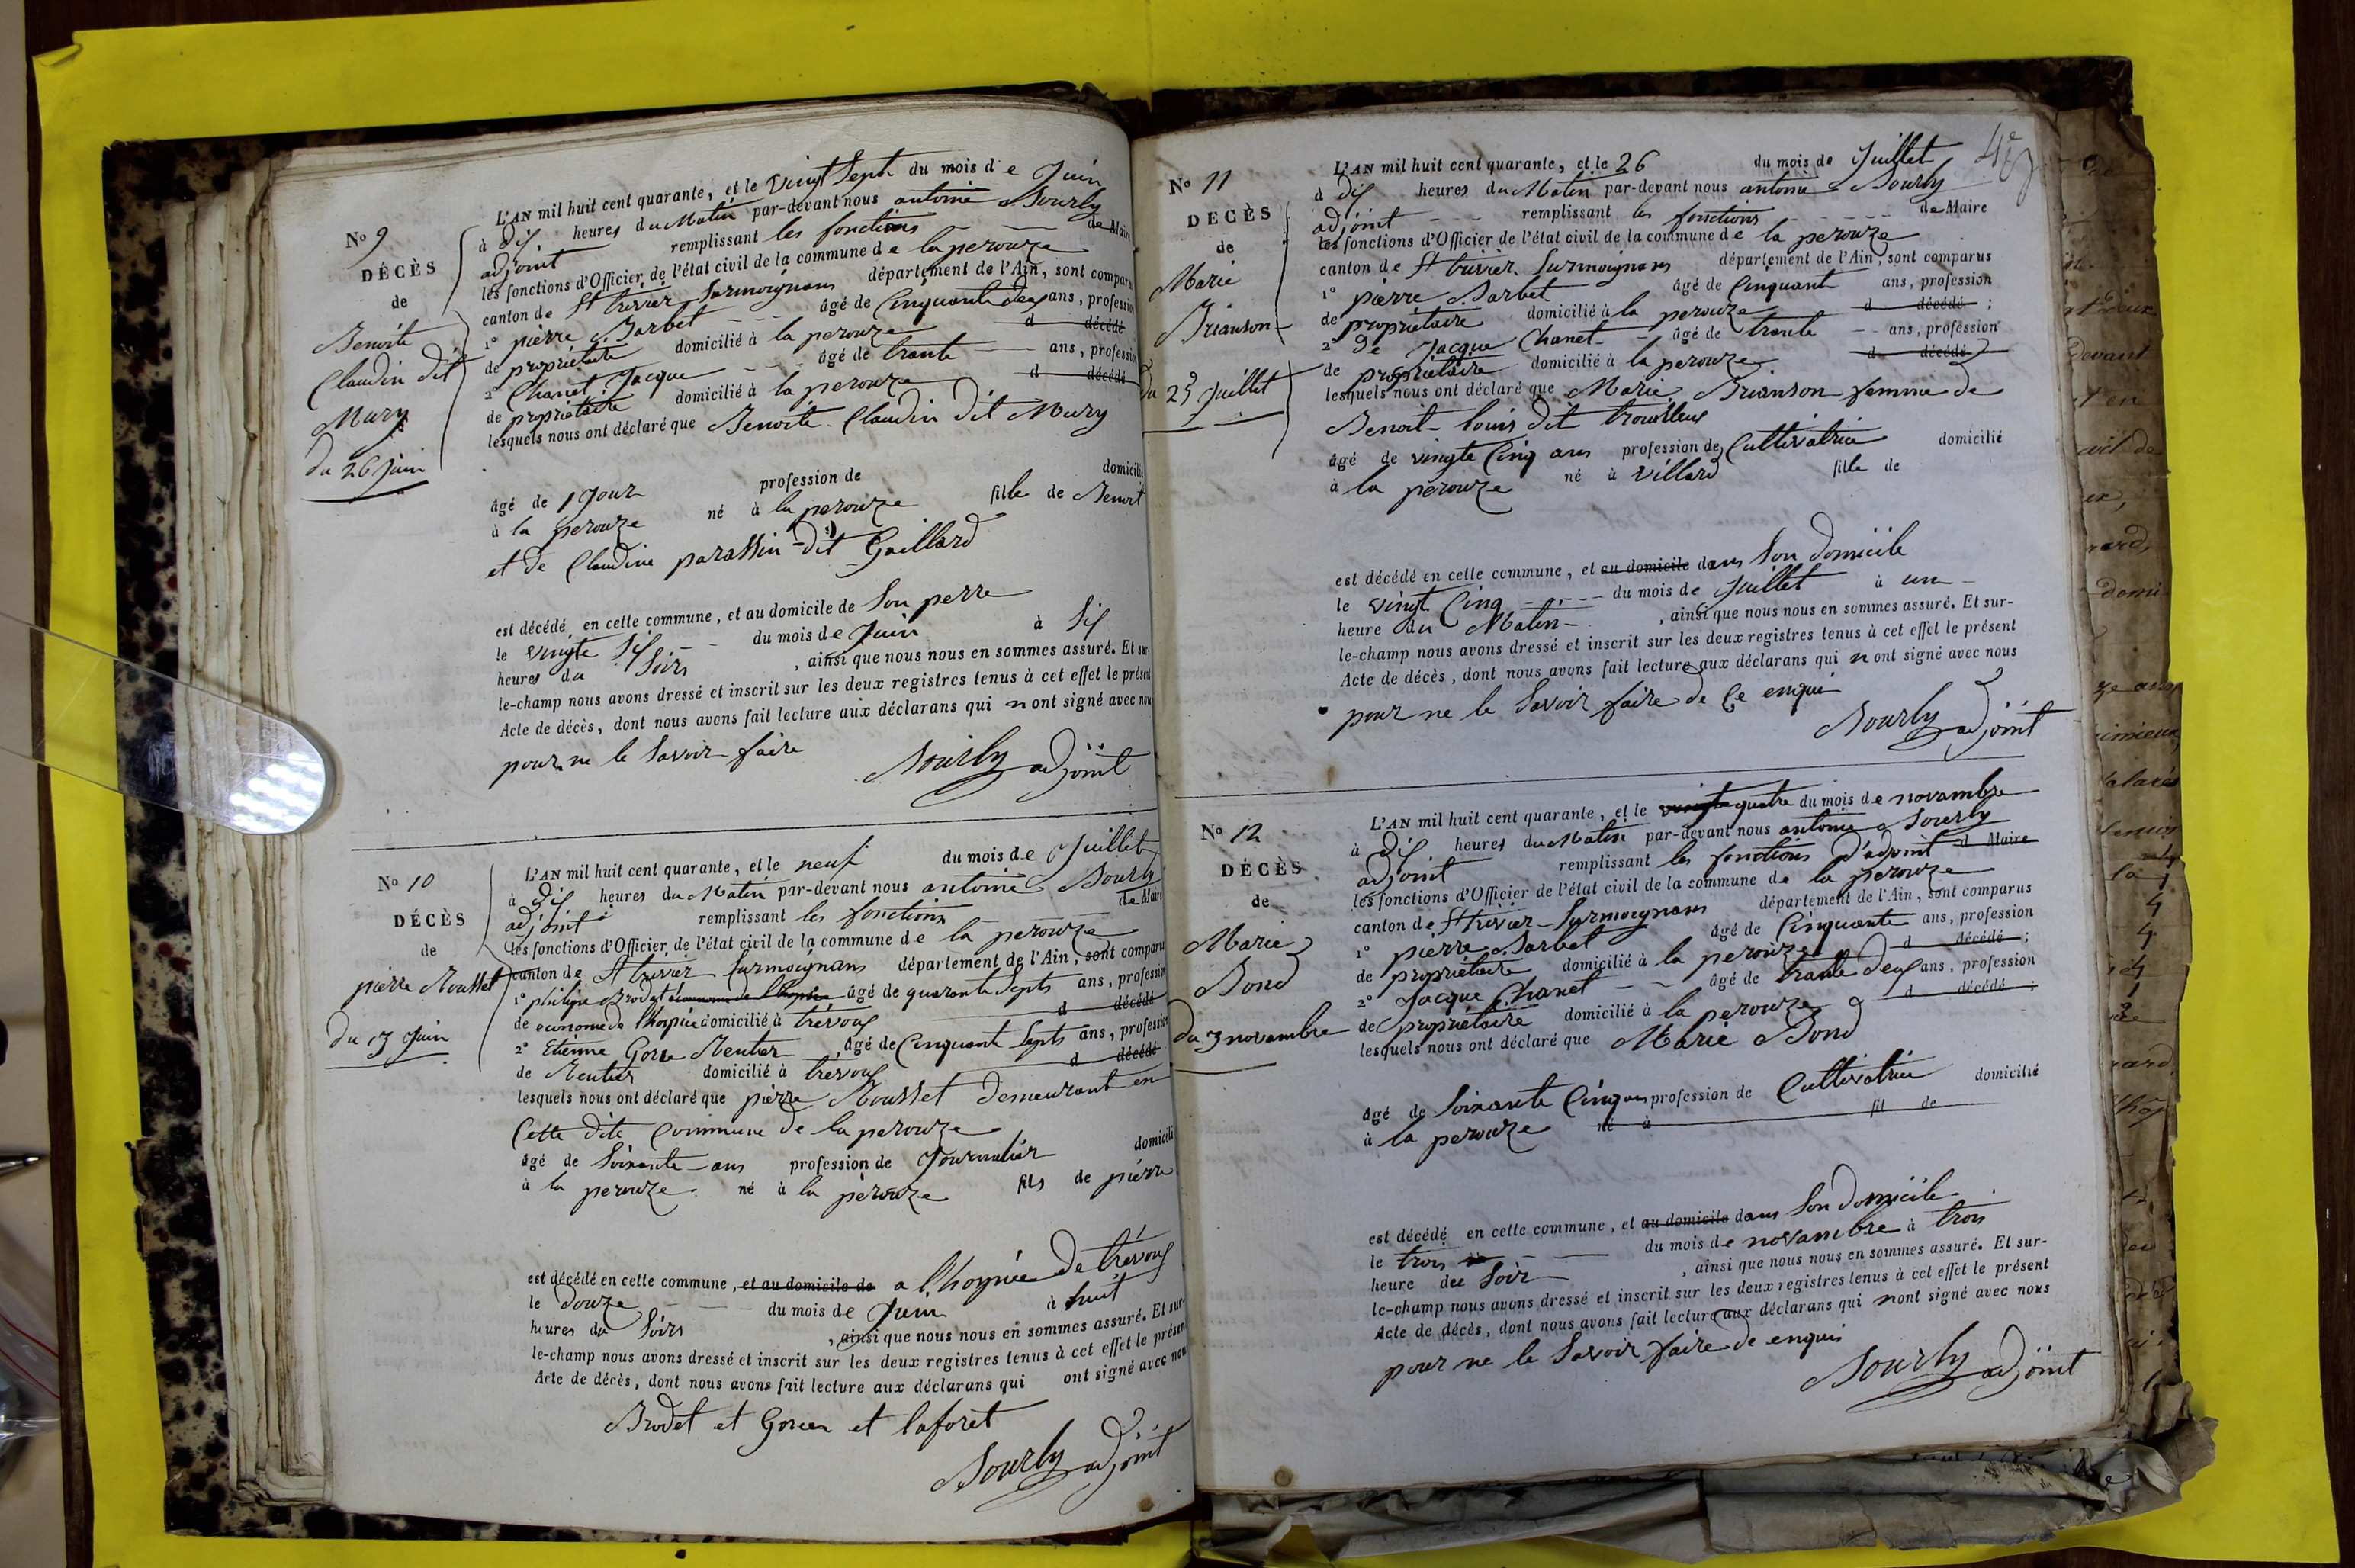 N° 9
DÉCÈS
de
Benoite
Claudin dit
Mury
du 26 juin
L'AN mil huit cent quarante, et le vingt sept du mois de Juin
à dix heures du Matin par-devant nous antoine Sourly
adjoint remplissant les fonctions de Maire
les fonctions d'Officier de l'état civil de la commune de la perouze
canton de St trivier Surmoignans département de l'Ain, sont comparus
1° pierre Barbet âgé de Cinquante deux ans, profession
de propriétaire domicilié à la perouze d décédé
2° Chanet Jacque âgé de trante ans, profession
de propriétaire domicilié à la perouze d décédé
lesquels nous ont déclaré que Benoite Claudin dit Mury
âgé de 1 Jour profession de domicilié
à la perouze né à la perouze fille de Benoit
et de Claudine parassin dit Gaillard
est décédé en cette commune, et au domicile de Son perre
le vingte Six du mois de Juin à Six
heures du Soirs , ainsi que nous nous en sommes assuré. Et sur-
le-champ nous avons dressé et inscrit sur les deux registres tenus à cet effet le présent
Acte de décès, dont nous avons fait lecture aux déclarans qui n ont signé avec nous
pour ne le Savoir faire
Sourly adjoint
N° 10
DÉCÈS
de
pierre Mousset
du 13 Juin
L'AN mil huit cent quarante, et le neuf du mois de Juillet
à dix heures du Matin par-devant nous antoine Sourly
adjoint remplissant les fonctions de Maire
les fonctions d'Officier de l'état civil de la commune de la perouze
canton de St trivier Surmoignans département de l'Ain, sont comparus
1° philipe Brodet économe de l'hospice âgé de quarante Septs ans, profession
de econome de l'hospice domicilié à trévoux d décédé
2° Etienne Rentier âgé de Cinquant Septs ans, profession
de Rentier domicilié à trévoux d décédé
lesquels nous ont déclaré que pierre Mousset demeurant en
Cette dite Commune de la perouze
âgé de Soixante ans profession de Journalier domicilié
à la perouze né à la perouze fils de pierre
est décédé en cette commune, et au domicile de a l'hospice de trévoux
le douze du mois de Juin à huit
heures du Soirs , ainsi que nous nous en sommes assuré. Et sur-
le-champ nous avons dressé et inscrit sur les deux registres tenus à cet effet le présent
Acte de décès, dont nous avons fait lecture aux déclarans qui ont signé avec nous
Brodet et et laforet
Sourly adjoint
N° 11
DÉCÈS
de
Marie
Brianson
du 25 Juillet
L'AN mil huit cent quarante, et le 26 du mois de Juillet
à dix heures du Matin par-devant nous antoine Sourly
adjoint remplissant les fonctions de Maire
les fonctions d'Officier de l'état civil de la commune de la perouze
canton de St trivier Surmoignans département de l'Ain, sont comparus
1° pierre Barbet âgé de Cinquant ans, profession
de propriétaire domicilié à la perouze d décédé ;
2° de Jacque Chanet âgé de trante ans, profession
de propriétaire domicilié à la perouze d décédé
lesquels nous ont déclaré que Marie Brianson femme de
Benoit louis dit trouilleux
âgé de vingte Cinq ans profession de Cultivatrice domicilié
à la perouze né à villard fille de
est décédé en cette commune, et au domicile dans Son domicile
le vingt Cinq du mois de Juillet à un
heure du Matin , ainsi que nous nous en sommes assuré. Et sur-
le-champ nous avons dressé et inscrit sur les deux registres tenus à cet effet le présent
Acte de décès, dont nous avons fait lecture aux déclarans qui n ont signé avec nous
pour ne le Savoir faire de Ce enqui
Sourly adjoint
N° 12
DÉCÈS
de
Marie
Bond
du 3 novembre
L'AN mil huit cent quarante, et le vingte quatre du mois de novambre
à dix heures du Matin par-devant nous antoine Sourly
adjoint remplissant les fonctions d'adjoint d Maire
les fonctions d'Officier de l'état civil de la commune de la perouze
canton de St trivier Surmoignans département de l'Ain, sont comparus
1° pierre Barbet âgé de Cinquante ans, profession
de propriétaire domicilié à la perouze d décédé ;
2° Jacque Chanet âgé de trante deux ans, profession
de propriétaire domicilié à la perouze d décédé ;
lesquels nous ont déclaré que Marie Bond
âgé de Soixante Cinq ans profession de Cultivatrice domicilié
à la perouze né à fil de
est décédé en cette commune, et au domicile dans Son domicile
le trois du mois de novambre à trois
heure du Soir , ainsi que nous nous en sommes assuré. Et sur-
le-champ nous avons dressé et inscrit sur les deux registres tenus à cet effet le présent
Acte de décès, dont nous avons fait lecture aux déclarans qui n ont signé avec nous
pour ne le Savoir faire de enquis
Sourly adjoint